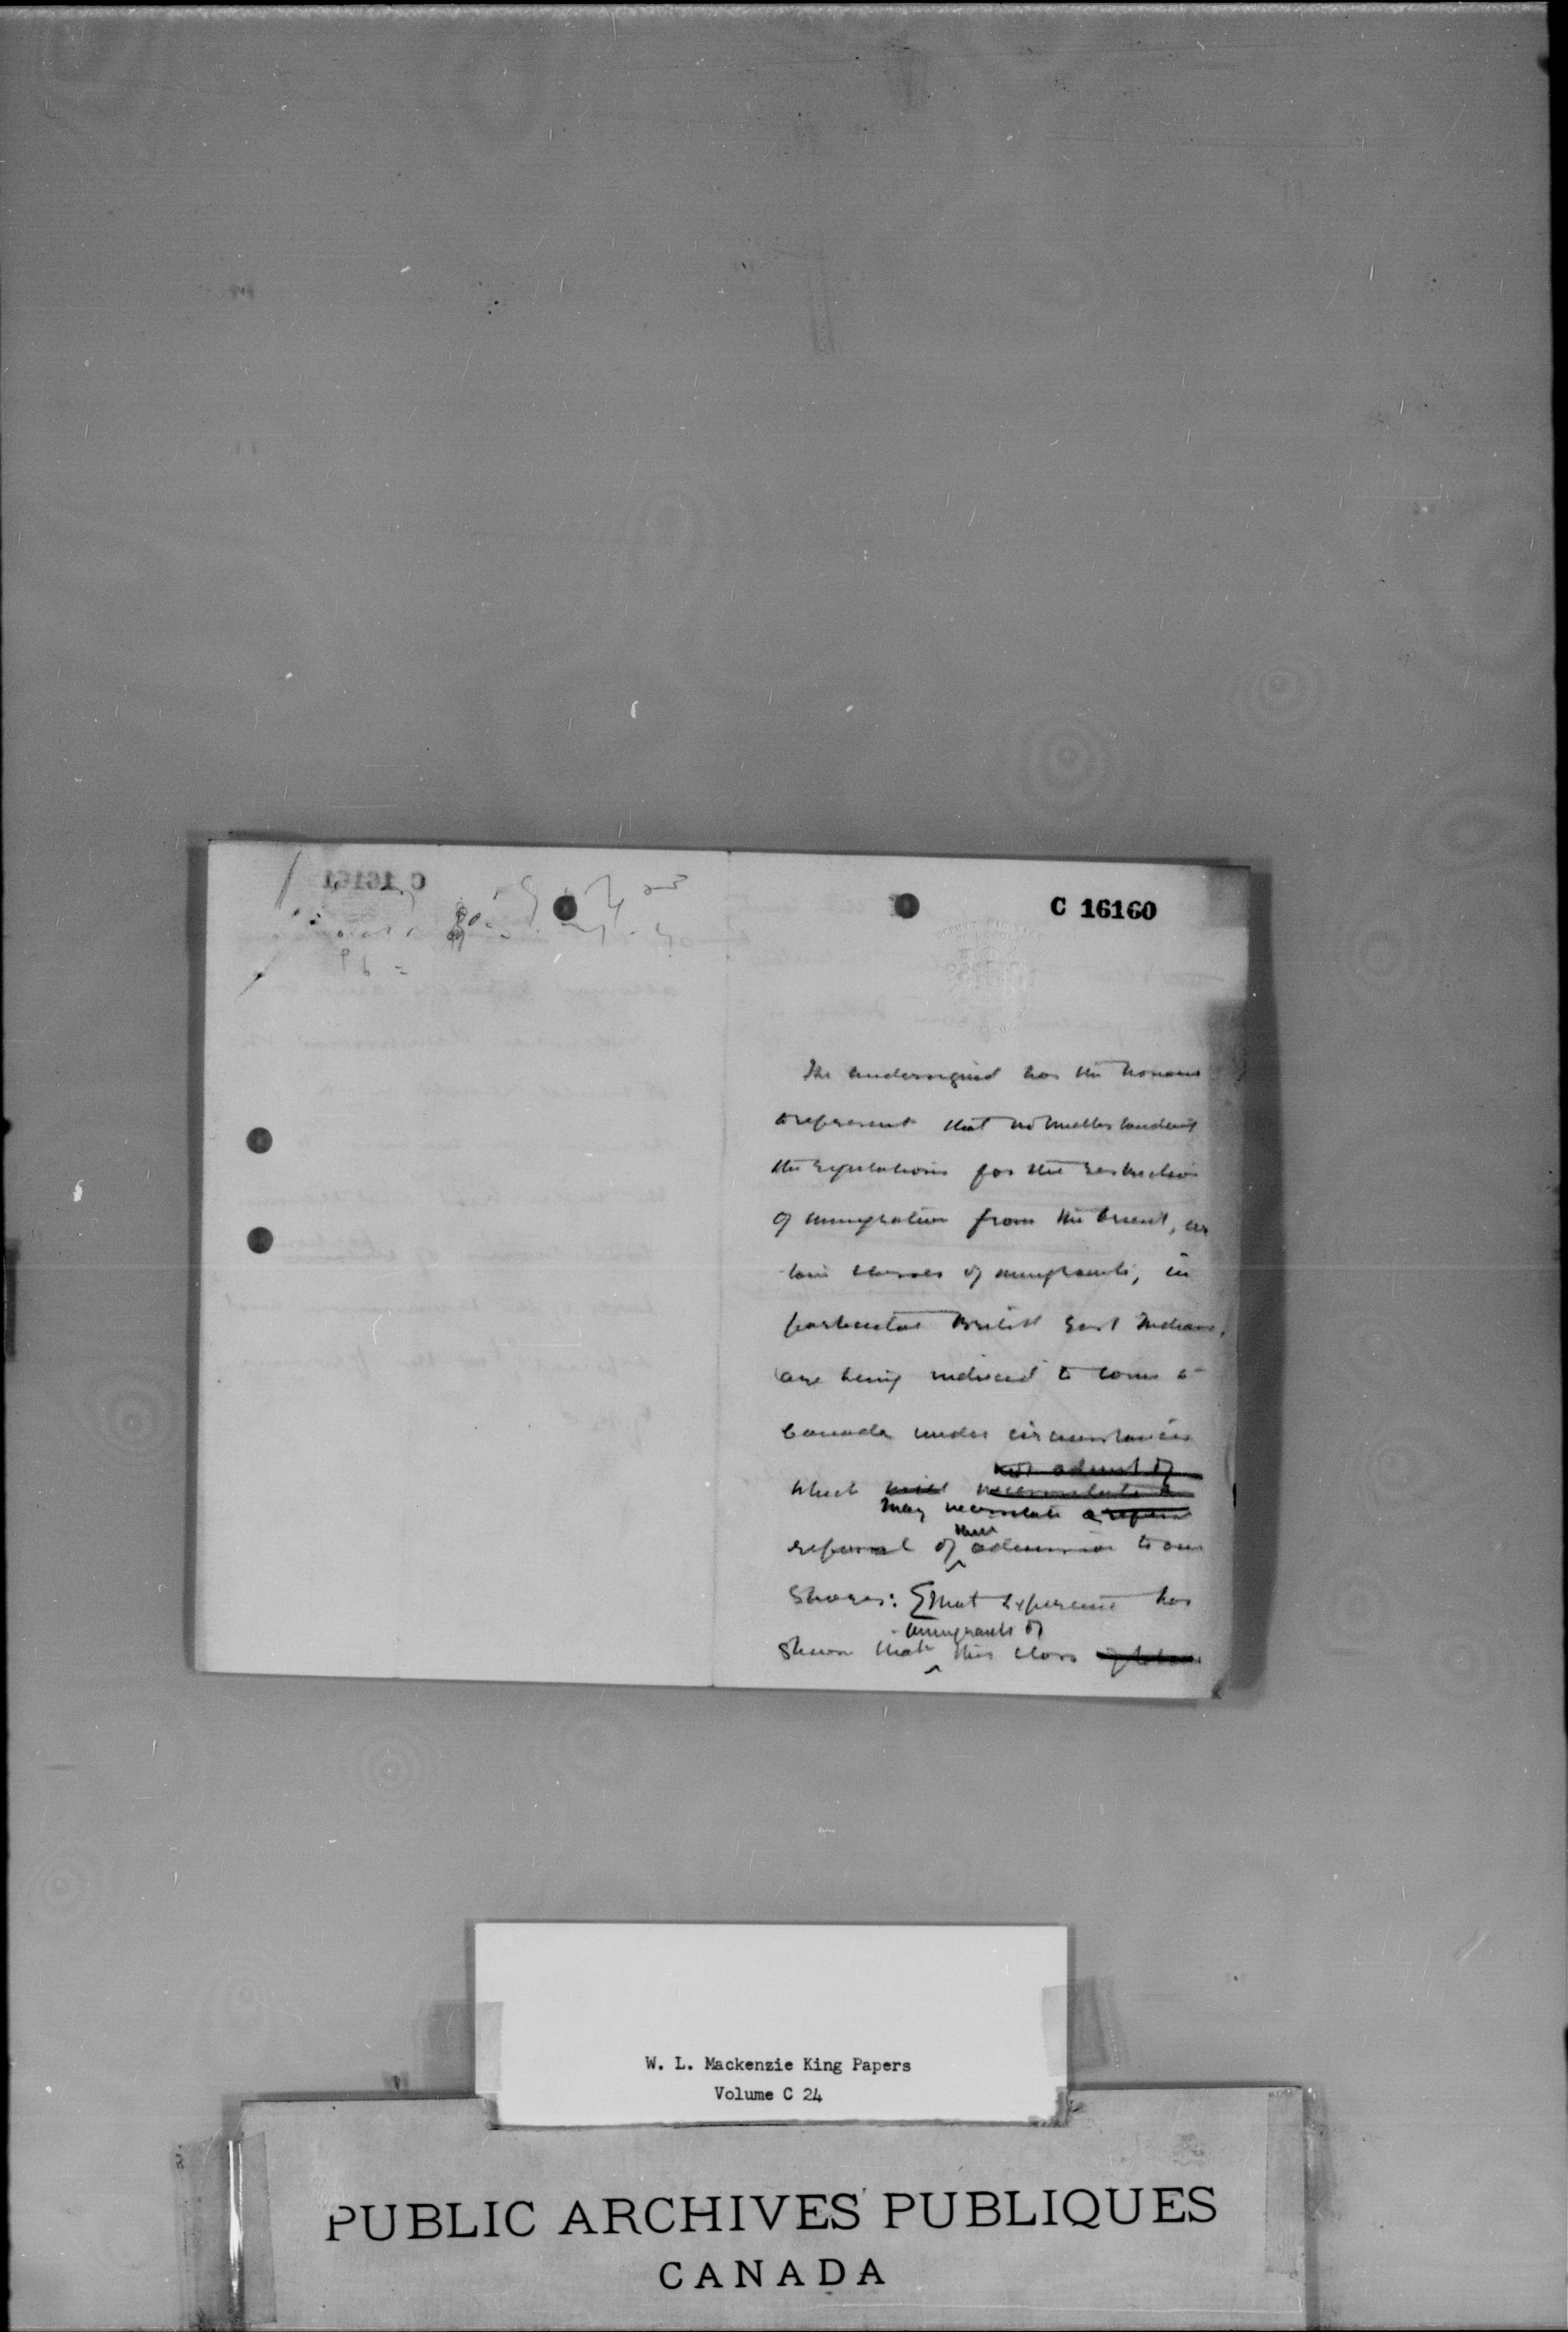 C 16160
The undersigned has the honour
to represent that notwithstanding
the regulations for the restriction
of immigration from the Orient, cer
tain classes of immigrants, in
particular British East Indians,
are being induced to come to
Canada under circumstances
not admit of
which will necessitate a
may necessitate a refusal
refusal of their admission to our
shores: that experience has
immigrants of
shewn that this class
W. L. Mackenzie King Papers
Volume C 24
PUBLIC ARCHIVES PUBLIQUES
CANADA